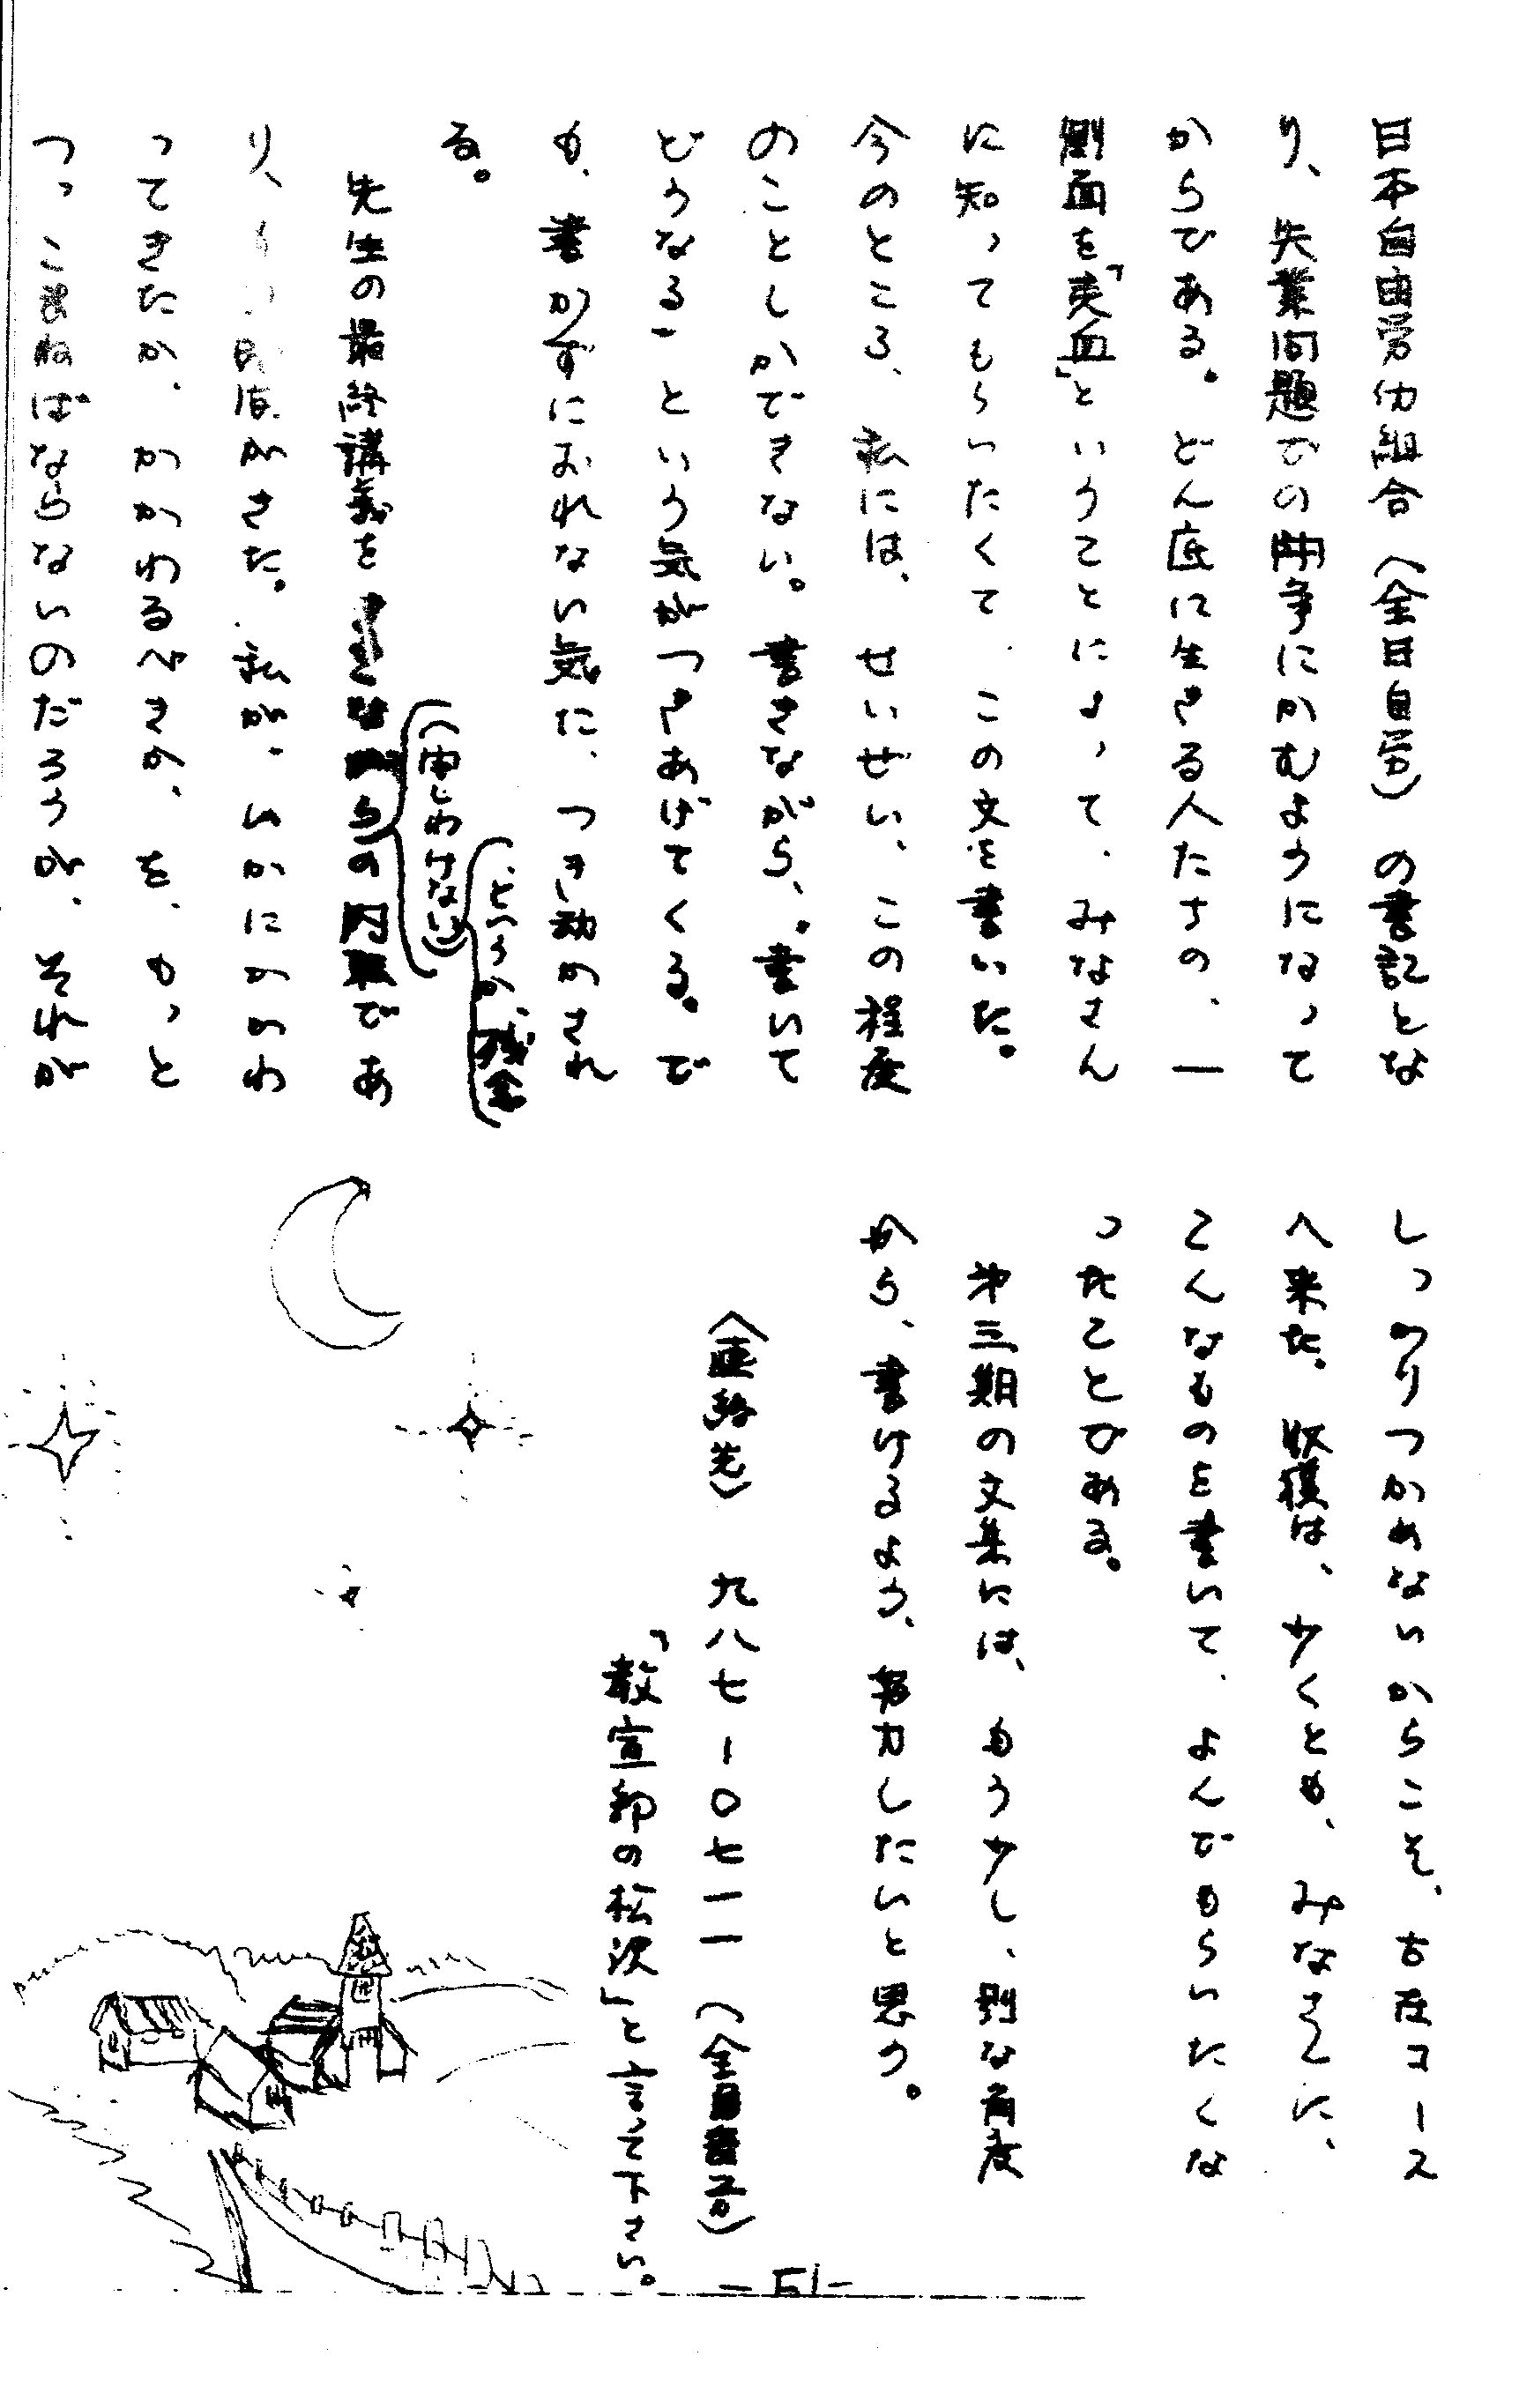 日本自由労仂組合（全日自労）の書記とな
り、失業問題での闘争にかむようになって
からである。どん底に生きる人たちの、一
側面を「売血」ということによって、みなさん
に知ってもらいたくて、この文を書いた。
今のところ、私には、せいぜい、この程度
のことしかできない。書きながら、。書いて
どうなる！という気がつきあげてくる。で
も、書かずにおれない気に、つき動かされ
る。
（申しわけない）
、というか、残念
先生の最終講義を書きながらの内職であ
り、
がきた。私が、いかにかかわ
ってきたか、かかわるべきか、を、もっと
つっこまねばならないのだろうが、それが
しっかりつかめないからこそ、古在コース
へ来た。収穫は、少くとも、みなさんに、
こんなものを書いて、よんでもらいたくな
ったことである。
才三期の文集には、もう少し、別な角度
から、書けるよう、努力したいと思う。
（連絡先）　九八七－〇七一一（全日自労）
「教宣部の松沢」と言って下さい。
－51－